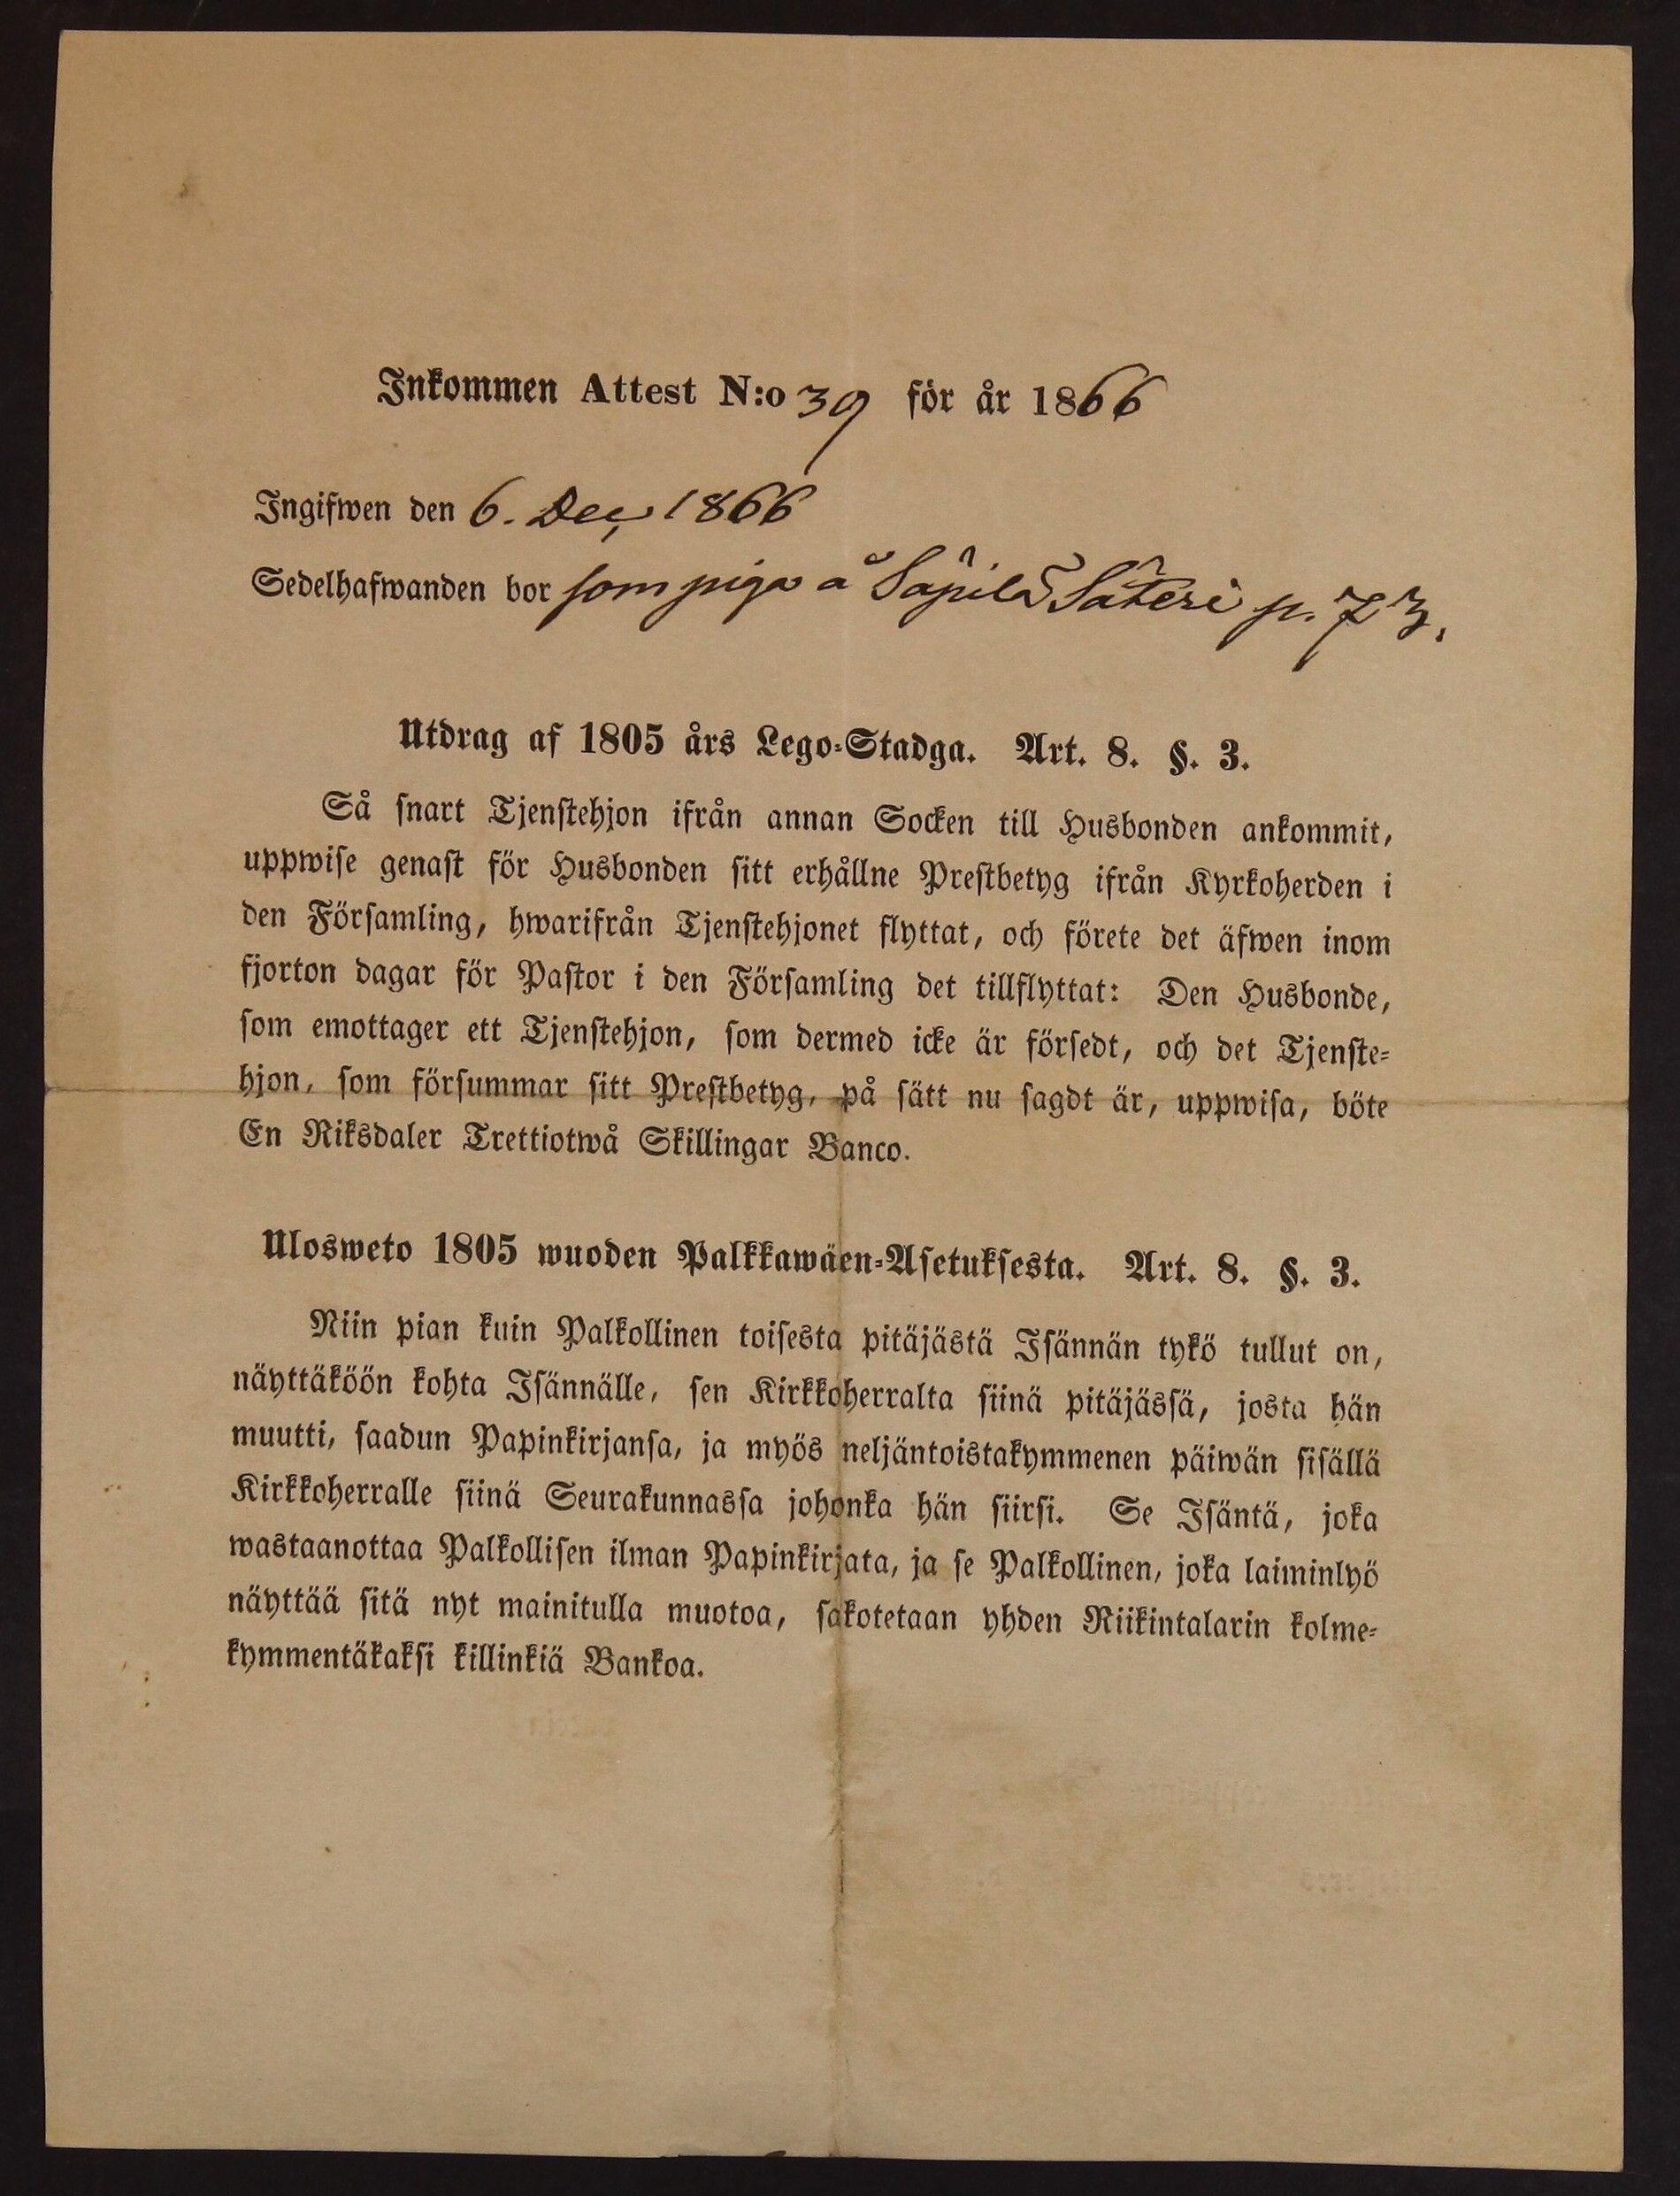 Inkommen Attest N:o 39 för år 1866
Ingifwen den 6. Dec, 1866
Sedelhafwanden bor som piga å Säpilä Säteri p. 73.
Utdrag af 1805 års Lego-Stadga. Art. 8. §. 3.
Så snart Tjenstehjon ifrån annan Socken till Husbonden ankommit,
uppwise genast för Husbonden sitt erhållne Prestbetyg ifrån Kyrkoherden i
den Församling, hwarifrån Tjenstehjonet flyttat, och förete det äfwen inom
fjorton dagar för Pastor i den Församling det tillflyttat: Den Husbonde,
som emottager ett Tjenstehjon, som dermed icke är försedt, och det Tjenste-
hjon, som försummar sitt Prestbetyg, på sätt nu sagdt är, uppwisa, böte
En Riksdaler Trettiotwå Skillingar Banco.
Ulosweto 1805 wuoden Palkkawäen-Asetuksesta. Art. 8. §. 3.
Niin pian kuin Palkollinen toisesta pitäjästä Isännän tykö tullut on,
näyttäköön kohta Isännälle, sen Kirkkoherralta siinä pitäjässä, josta hän
muutti, saadun Papinkirjansa, ja myös neljäntoistakymmenen päiwän sisällä
Kirkkoherralle siinä Seurakunnassa johonka hän siirsi. Se Isäntä, joka
wastaanottaa Palkollisen ilman Papinkirjata, ja se Palkollinen, joka laiminlyö
näyttää sitä nyt mainitulla muotoa, sakotetaan yhden Riikintalarin kolme-
kymmentäkaksi killinkiä Bankoa.